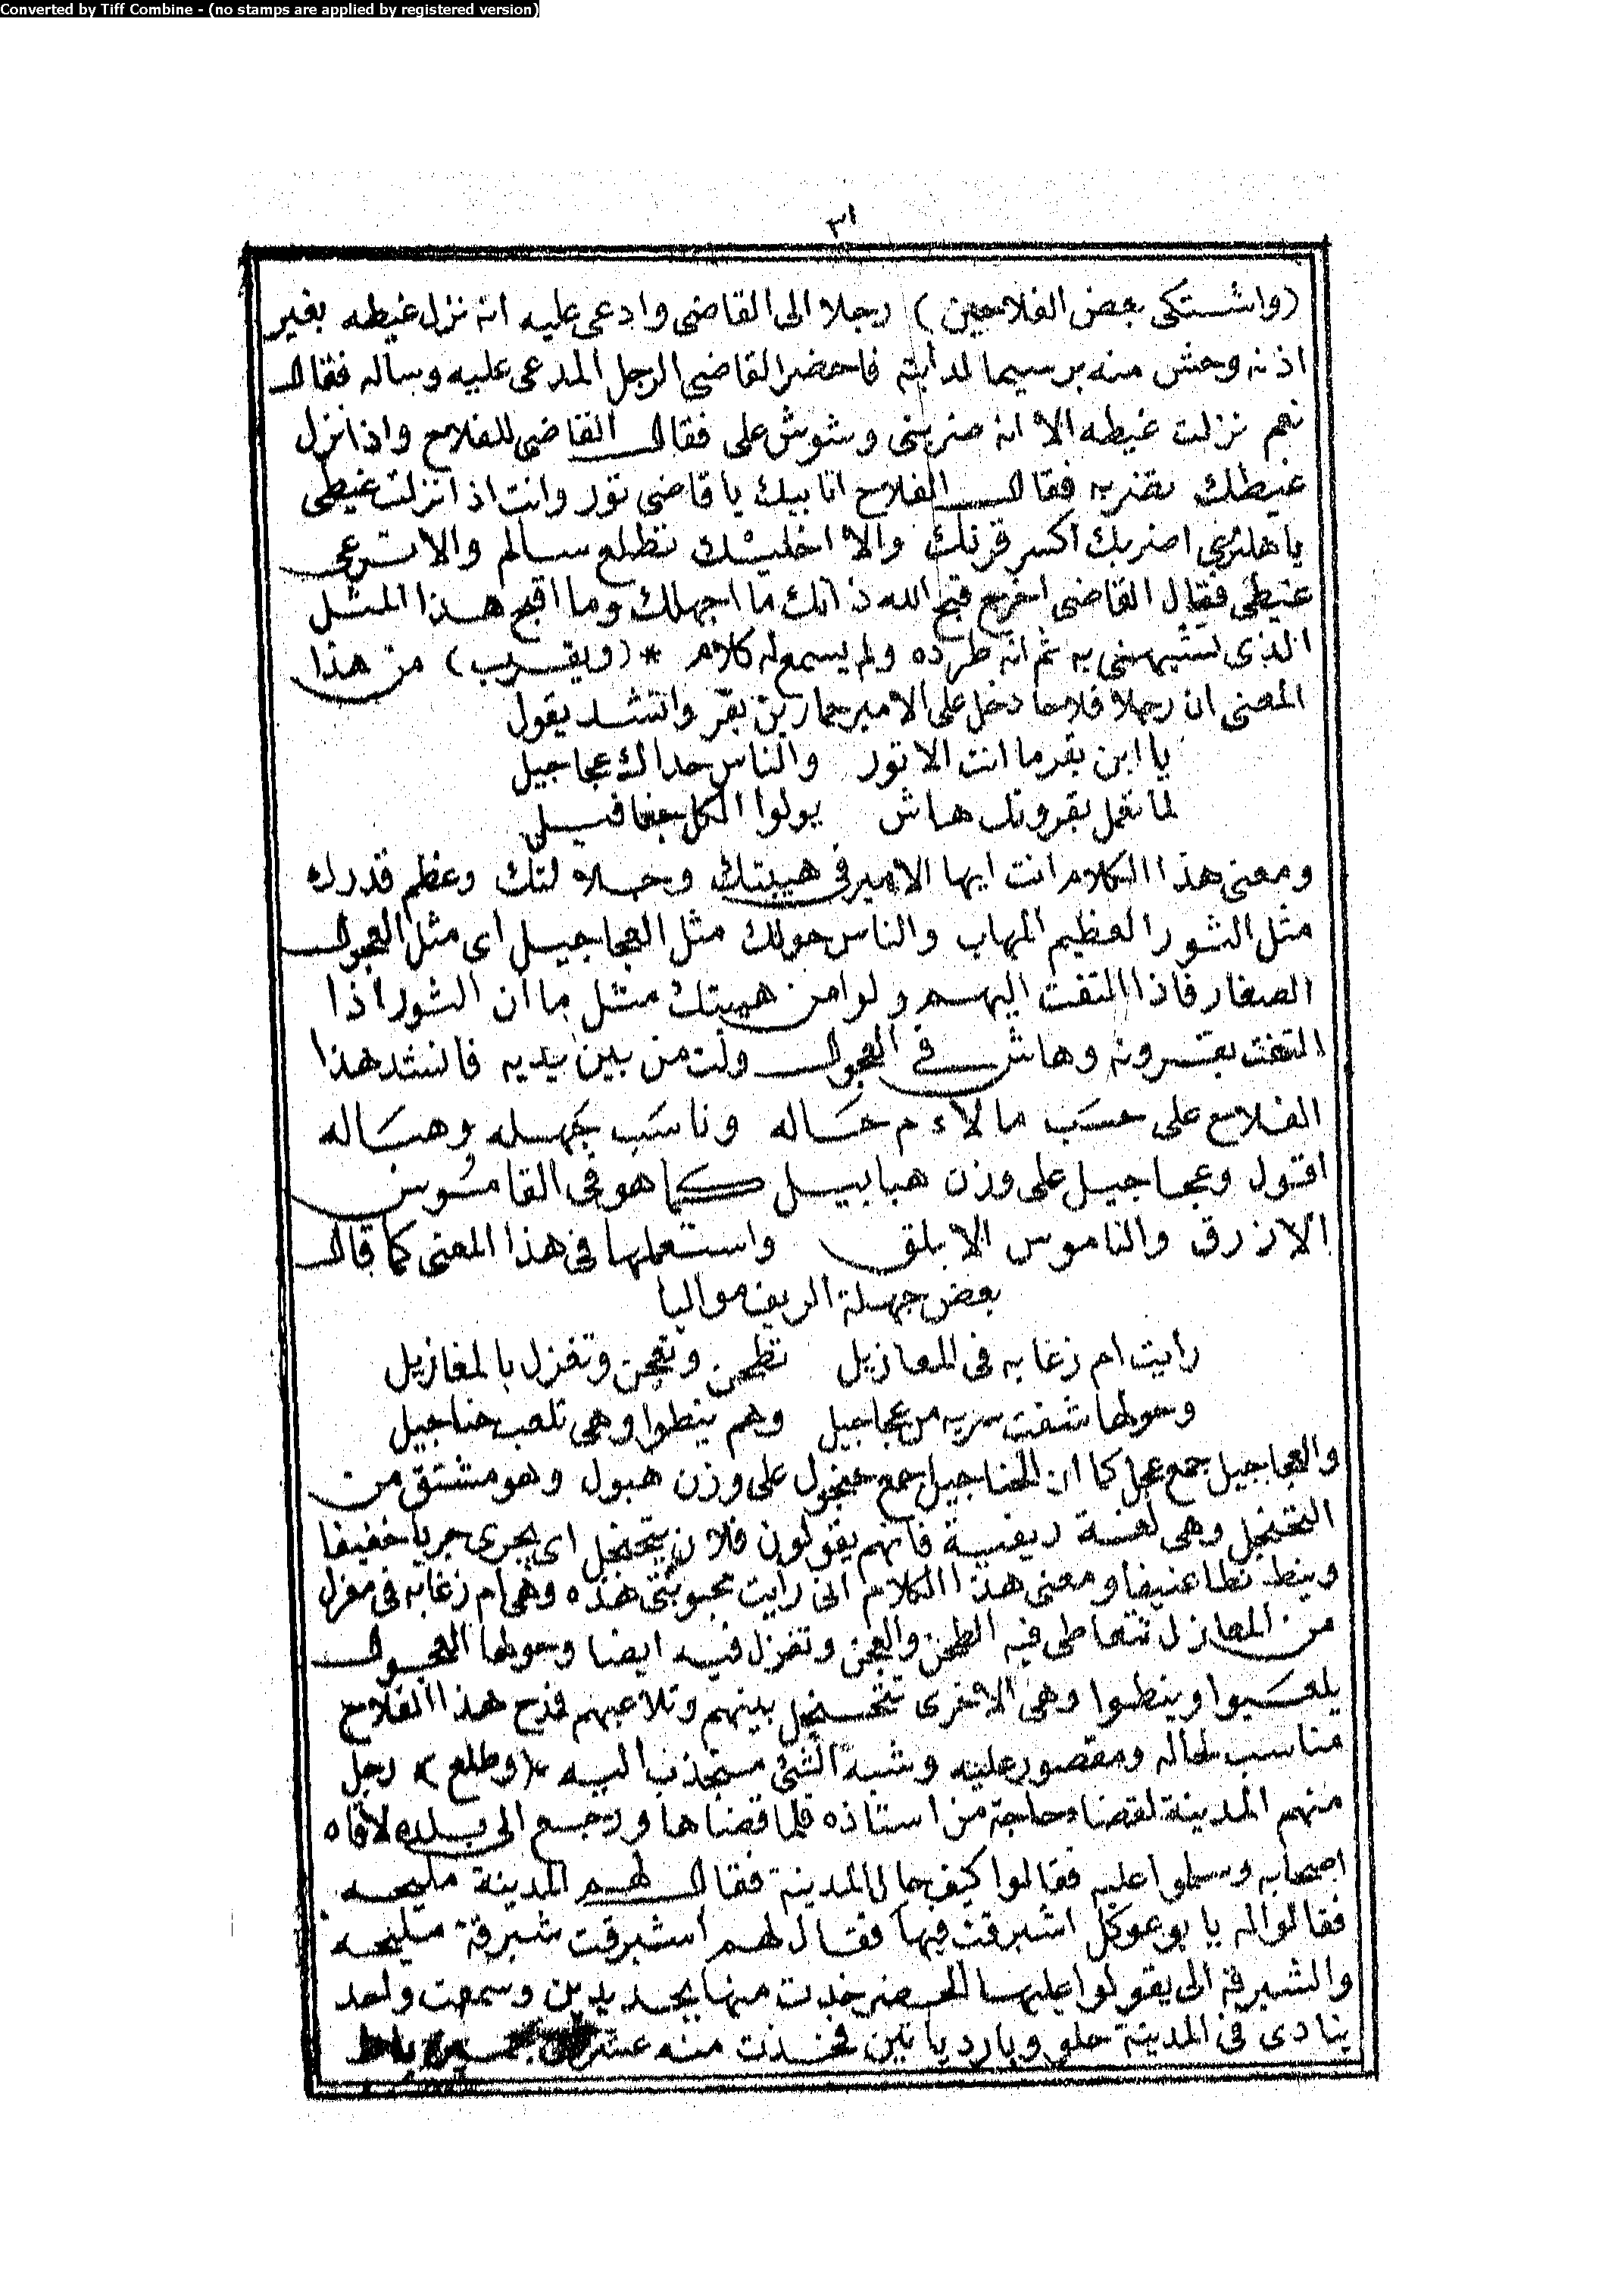 Converted by Tiff Combine - (no stamps are applied by registered version)
٣١
(واشتكى بعض الفلاحين) رجلا الى القاضى وادعى عليه انه نزل غيطه بغير
اذنه وحش منه برسيما لدابته فاحضر القاضى الرجل المدعى عليه وساله فقال
نعم نزلت غيطه الا انه ضربنى وشوش على فقال القاضى للفلاح واذا نزل
غيطك تضربه فقال الفلاح انا بيك يا قاضى تور وانت اذا نزلت غيطى
يا هلترى اضربك اكسر قرنك والا اخليك تطلع سالم والا ترعى
غيطى فقال القاضى اخرج قبح الله ذاتك ما اجهلك وما اقبح هذا المثل
الذى تشبهنى به ثم انه طرده ولم يسمع له كلام * (ويقرب) من هذا
المعنى ان رجلا فلاحا دخل على الامير حمار بن بقر وانشد يقول
يا ابن بقر ما انت الا تور والناس حداك عجاجيل
لما تعمل بقرونك هاش يولوا الكل جفافيل
ومعنى هذا الكلام انت ايها الامير فى هيبتك وجلالتك وعظم قدرك
مثل الثور العظيم المهاب والناس حولك مثل العجاجيل اى مثل العجول
الصغار فاذا التفت اليهم ولوا من هيبتك مثل ما ان الثور اذا
التفت بقرونه وهاش فى العجول ولت من بين يديه فانشد هذا
الفلاح على حسب ما لاءم حاله وناسب جهله وهباله
اقول وعجاجيل على وزن هبابيل كما هو فى القاموس
الازرق والناموس الابلق واستعملها فى هذا المعنى كما قال
بعض جهلة الريف مواليا
رايت ام زغابه فى المعازيل تطحن وتعجن وتغزل بالمغازيل
وحولها شفت سربه من عجاجيل وهم ينطوا وهى تلعب حناجيل
والعجاجيل جمع عجل كما ان الحناجيل جمع حنجول على وزن هبول وهو مشتق من
التحنجل وهى لغة ريفية فانهم يقولون فلان يتحنجل اى يجرى جريا خفيفا
وينط نطا عنيفا ومعنى هذا الكلام انى رايت محبوبتى هذه وهى ام زغابه فى معزل
من المعازل تتعاطى فيه الطحن والعجن وتغزل فيه ايضا وحولها العجول
يلعبوا وينطوا وهى الاخرى تتحنجل بينهم وتلاعبهم فمدح هذا الفلاح
مناسب لحاله ومقصور عليه وشبه الشئ منجذب اليه * (وطلع) رجل
منهم المدينة لقضاء حاجة من استاذه فلما قضاها ورجع الى بلده لاقاه
اصحابه وسلموا عليه فقالوا كيف حال المدينة فقال لهم المدينة مليحه
فقالوا له يا بو عوكل اشبرقت فيها فقال لهم اشبرقت شبرقة مليحه
والشبرقة الى يقولوا عليها الحضر خدت منها بجديدين وسمعت واحد
ينادى فى المدينة حلو وبارد يا تين فخدت منه عشر